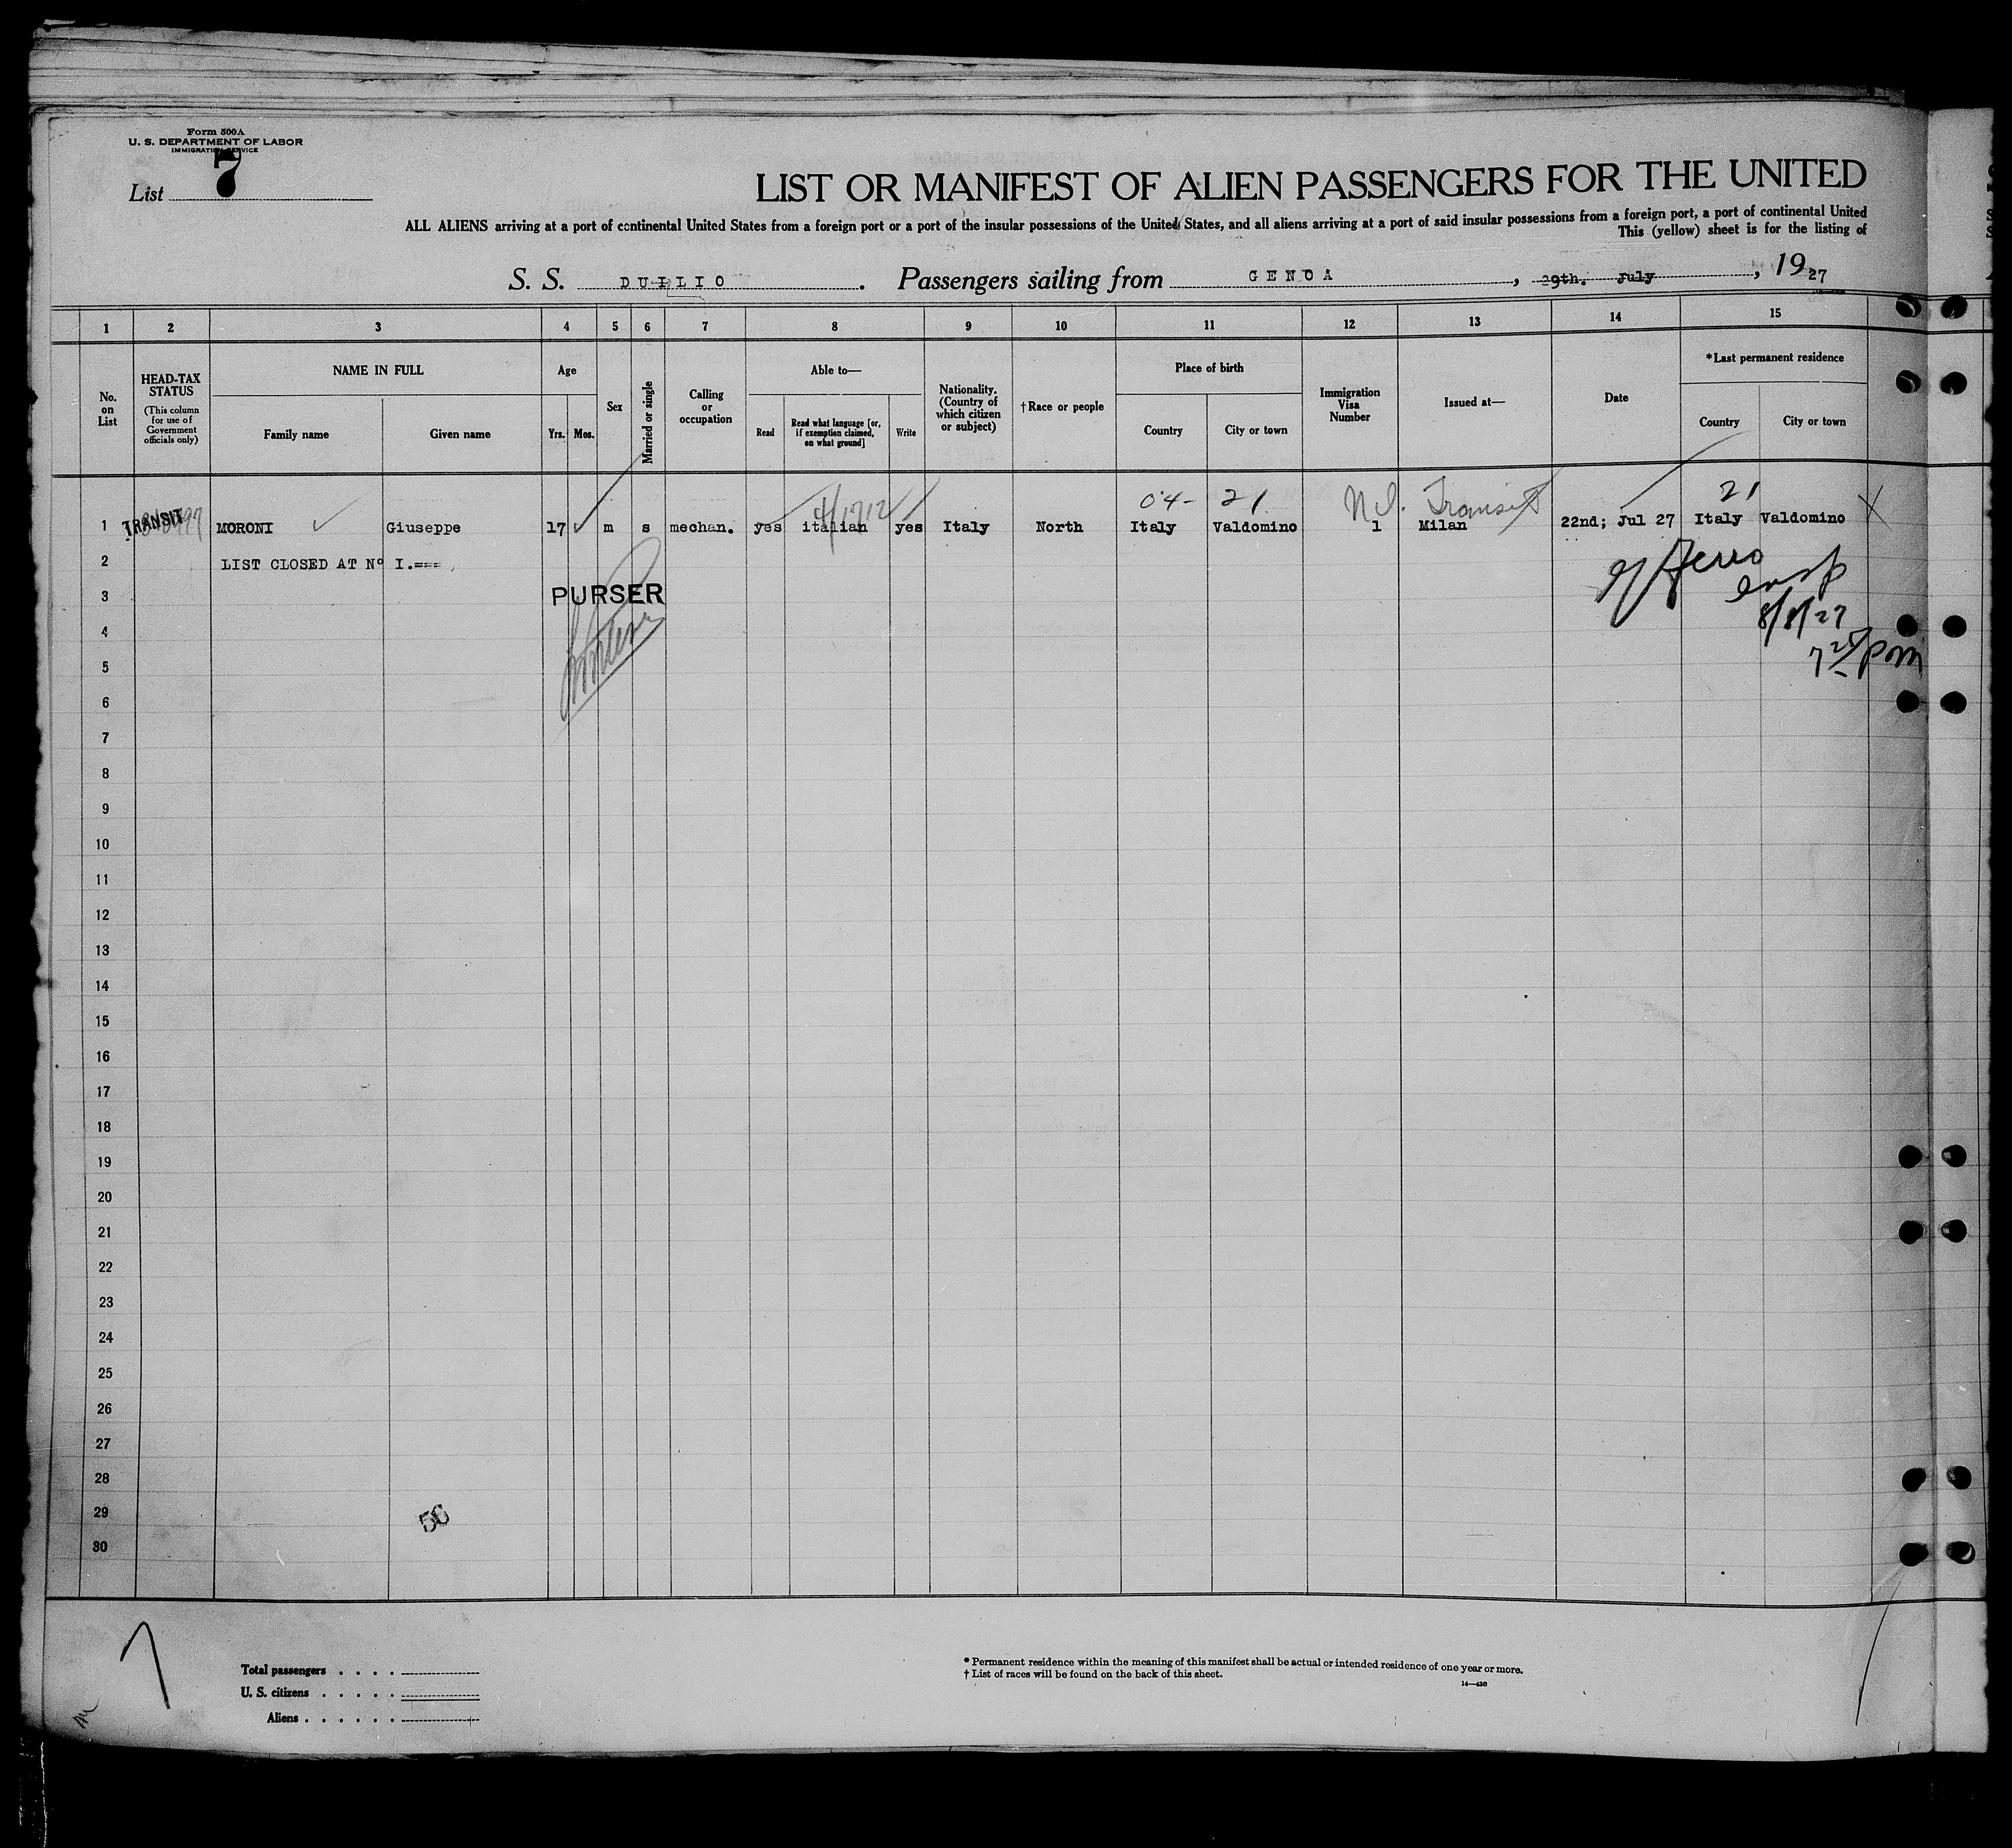 Form 500A
U. S. DEPARTMENT OF LABOR
IMMIGRATION SERVICE
List 7
LIST OR MANIFEST OF ALIEN PASSENGERS FOR THE UNITED
ALL ALIENS arriving at a port of continental United States from a foreign port or a port of the insular possessions of the United States, and all aliens arriving at a port of said insular possessions from a foreign port, a port of continental United
This (yellow) sheet is for the listing of
S. S. DUILIO. Passengers sailing from GENOA, 29th. July, 1927
1 2 3 4 5 6 7 8 9 10 11 12 13 14 15
No. on List
HEAD-TAX STATUS
(This column for use of Government officials only)
NAME IN FULL
Family name
Given name
Age
Yrs.
Mos.
Sex
Married or single
Calling or occupation
Able to—
Read
Read what language [or, if exemption claimed, on what ground]
Write
Nationality. (Country of which citizen or subject)
†Race or people
Place of birth
Country
City or town
Immigration Visa Number
Issued at—
Date
*Last permanent residence
Country
City or town
04- 21 Transit 21
1 TRANSIT MORONI Giuseppe 17 m s mechan. yes italian yes Italy North Italy Valdomino 1 Milan 22nd; Jul 27 Italy Valdomino X
4/1712
2 LIST CLOSED AT Nº I.===
Insp
3 PURSER
8/8/27
4
5
7 25 pm
6
7
8
9
10
11
12
13
14
15
16
17
18
19
20
21
22
23
24
25
26
27
28
29 56
30
7
Total passengers . . . .
U. S. citizens . . . . .
Aliens . . . . . .
* Permanent residence within the meaning of this manifest shall be actual or intended residence of one year or more.
† List of races will be found on the back of this sheet.
14—436